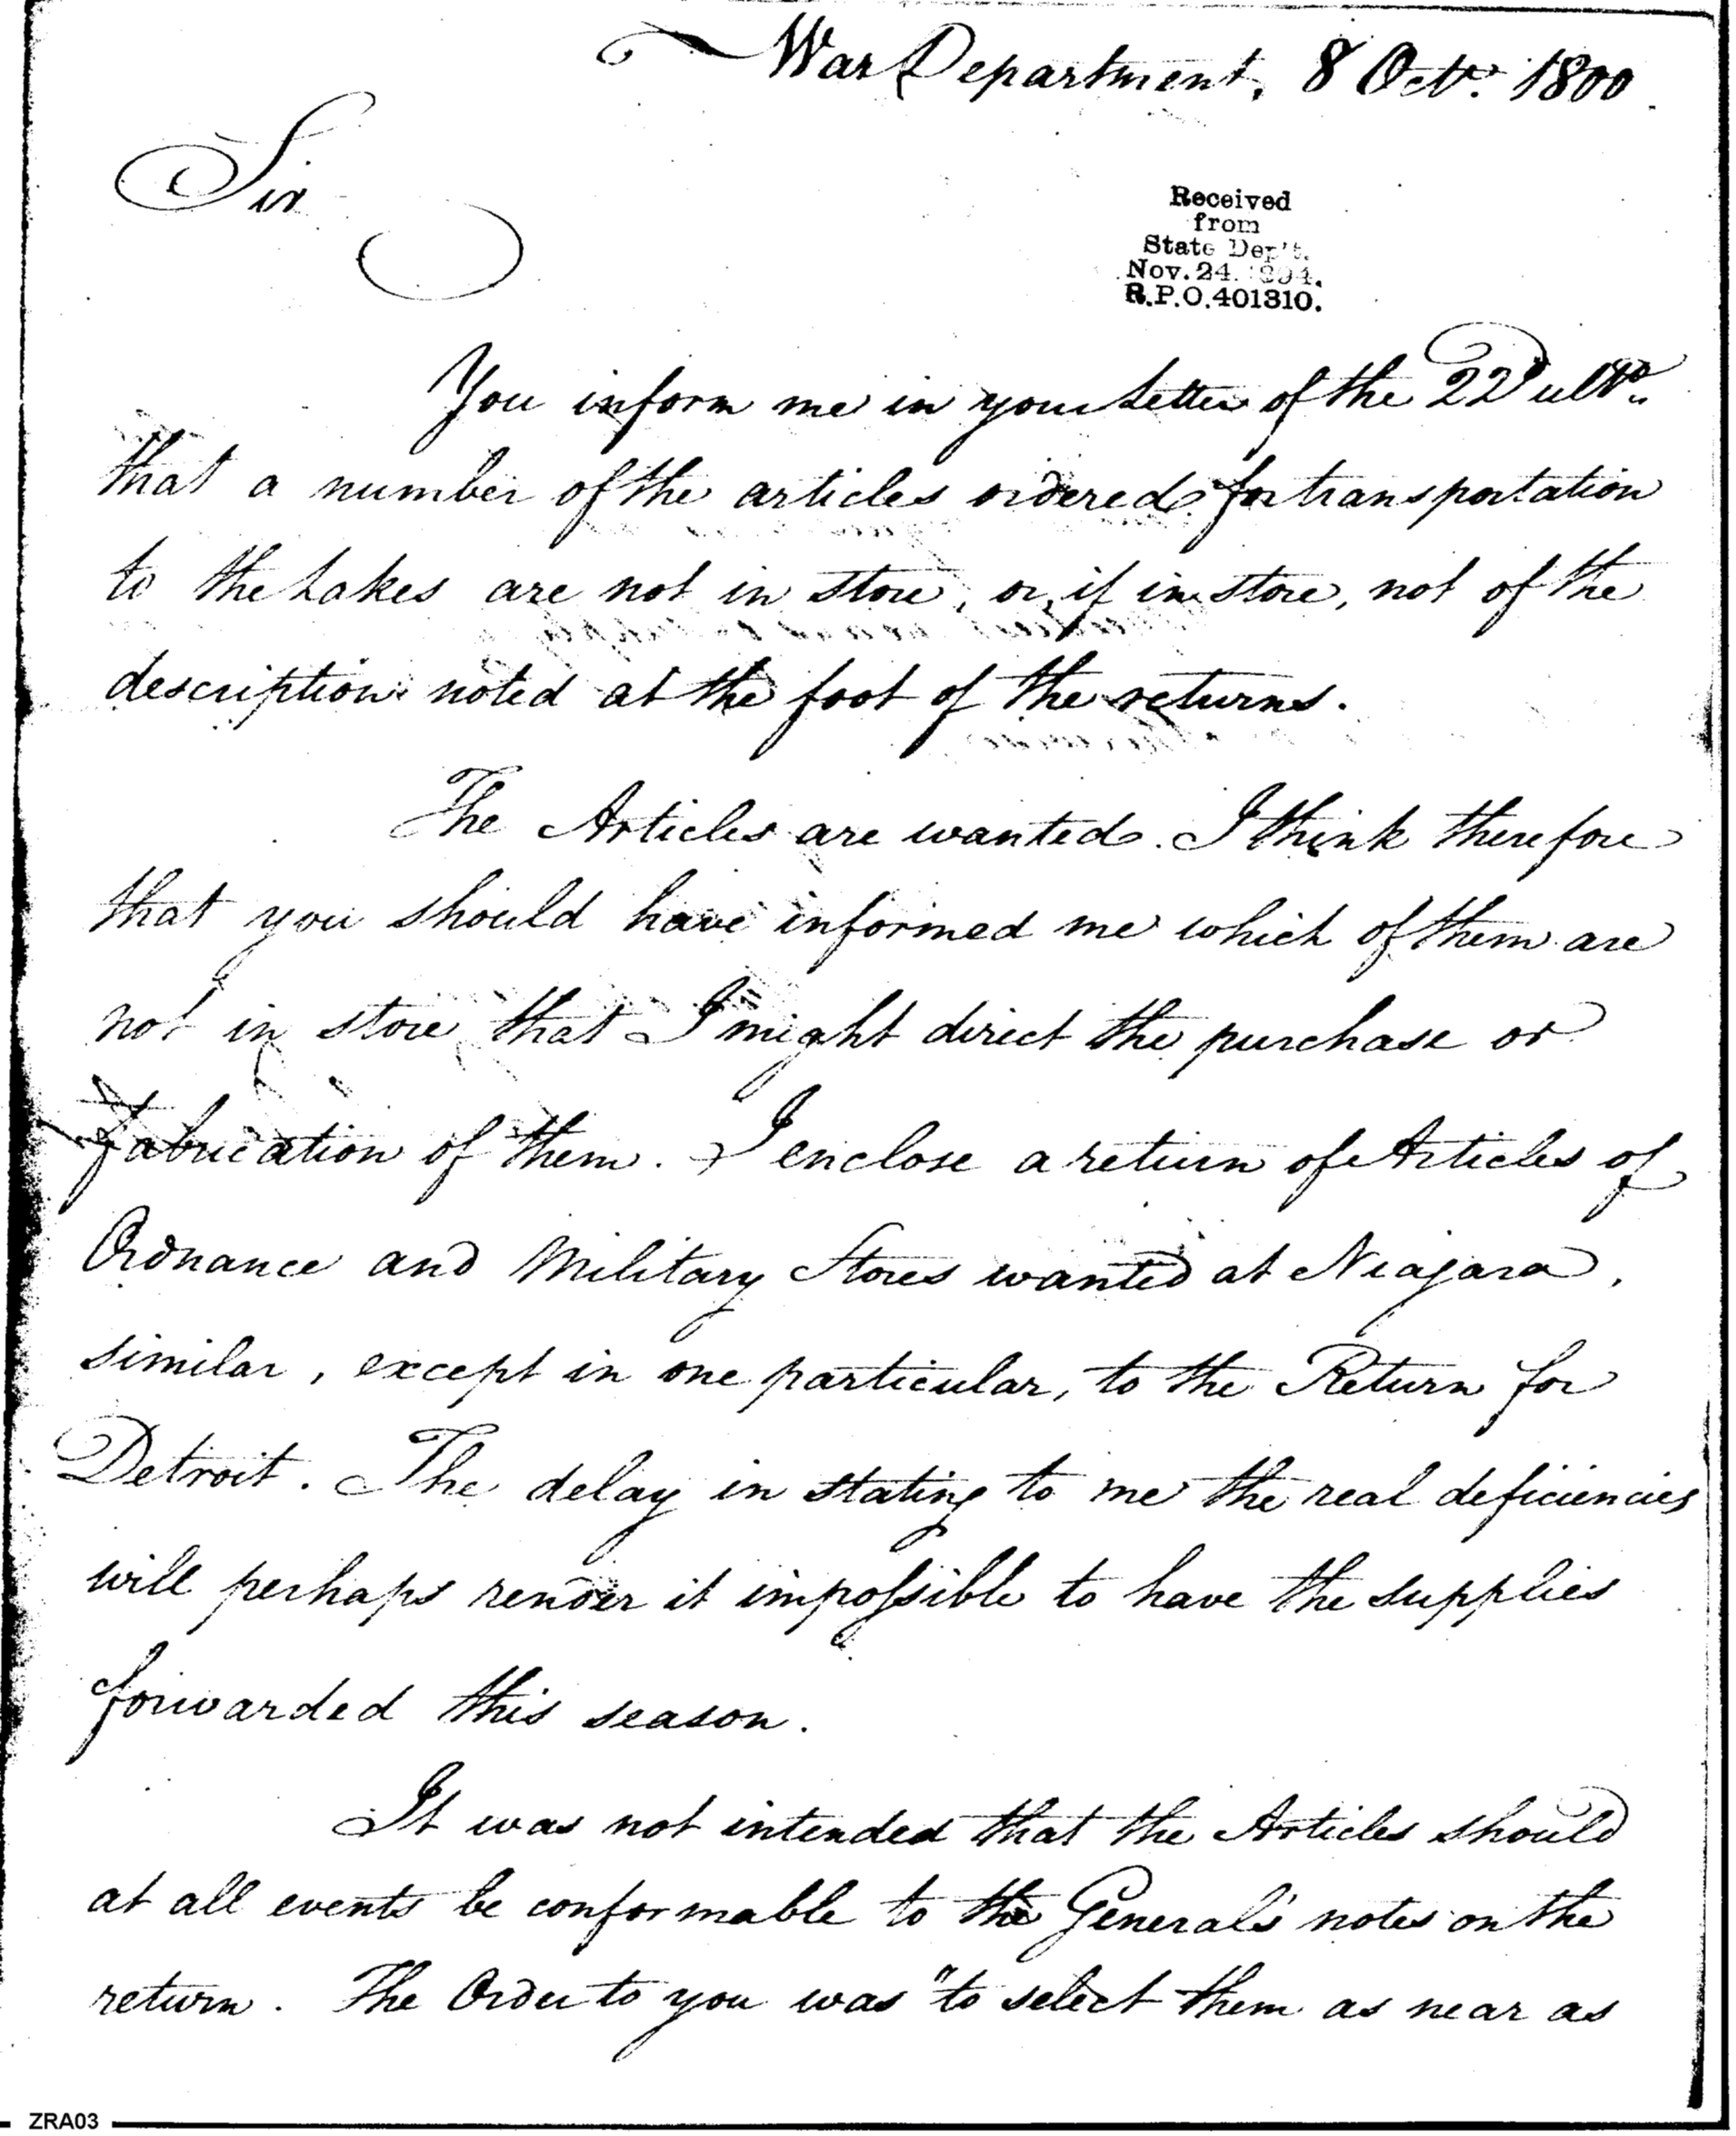 War Department, 8 Octr. 1800.
Sir
Received
from
State Dep't.
Nov. 24. 1894.
R.P.O. 401310.
You inform me in your Letter of the 22d ulto.
that a number of the articles ordered for transportation
to the Lakes are not in store, or, if in store, not of the
description noted at the foot of the returns.
The Articles are wanted. I think therefore
that you should have informed me which of them are
not in store that I might direct the purchase or
fabrication of them. I enclose a return of Articles of
Ordnance and Military Stores wanted at Niagara,
similar, except in one particular, to the Return for
Detroit. The delay in stating to me the real deficiencies
will perhaps render it impossible to have the supplies
forwarded this season.
It was not intended that the Articles should
at all events be conformable to the General's notes on the
return. The Order to you was "to select them as near as
ZRA03